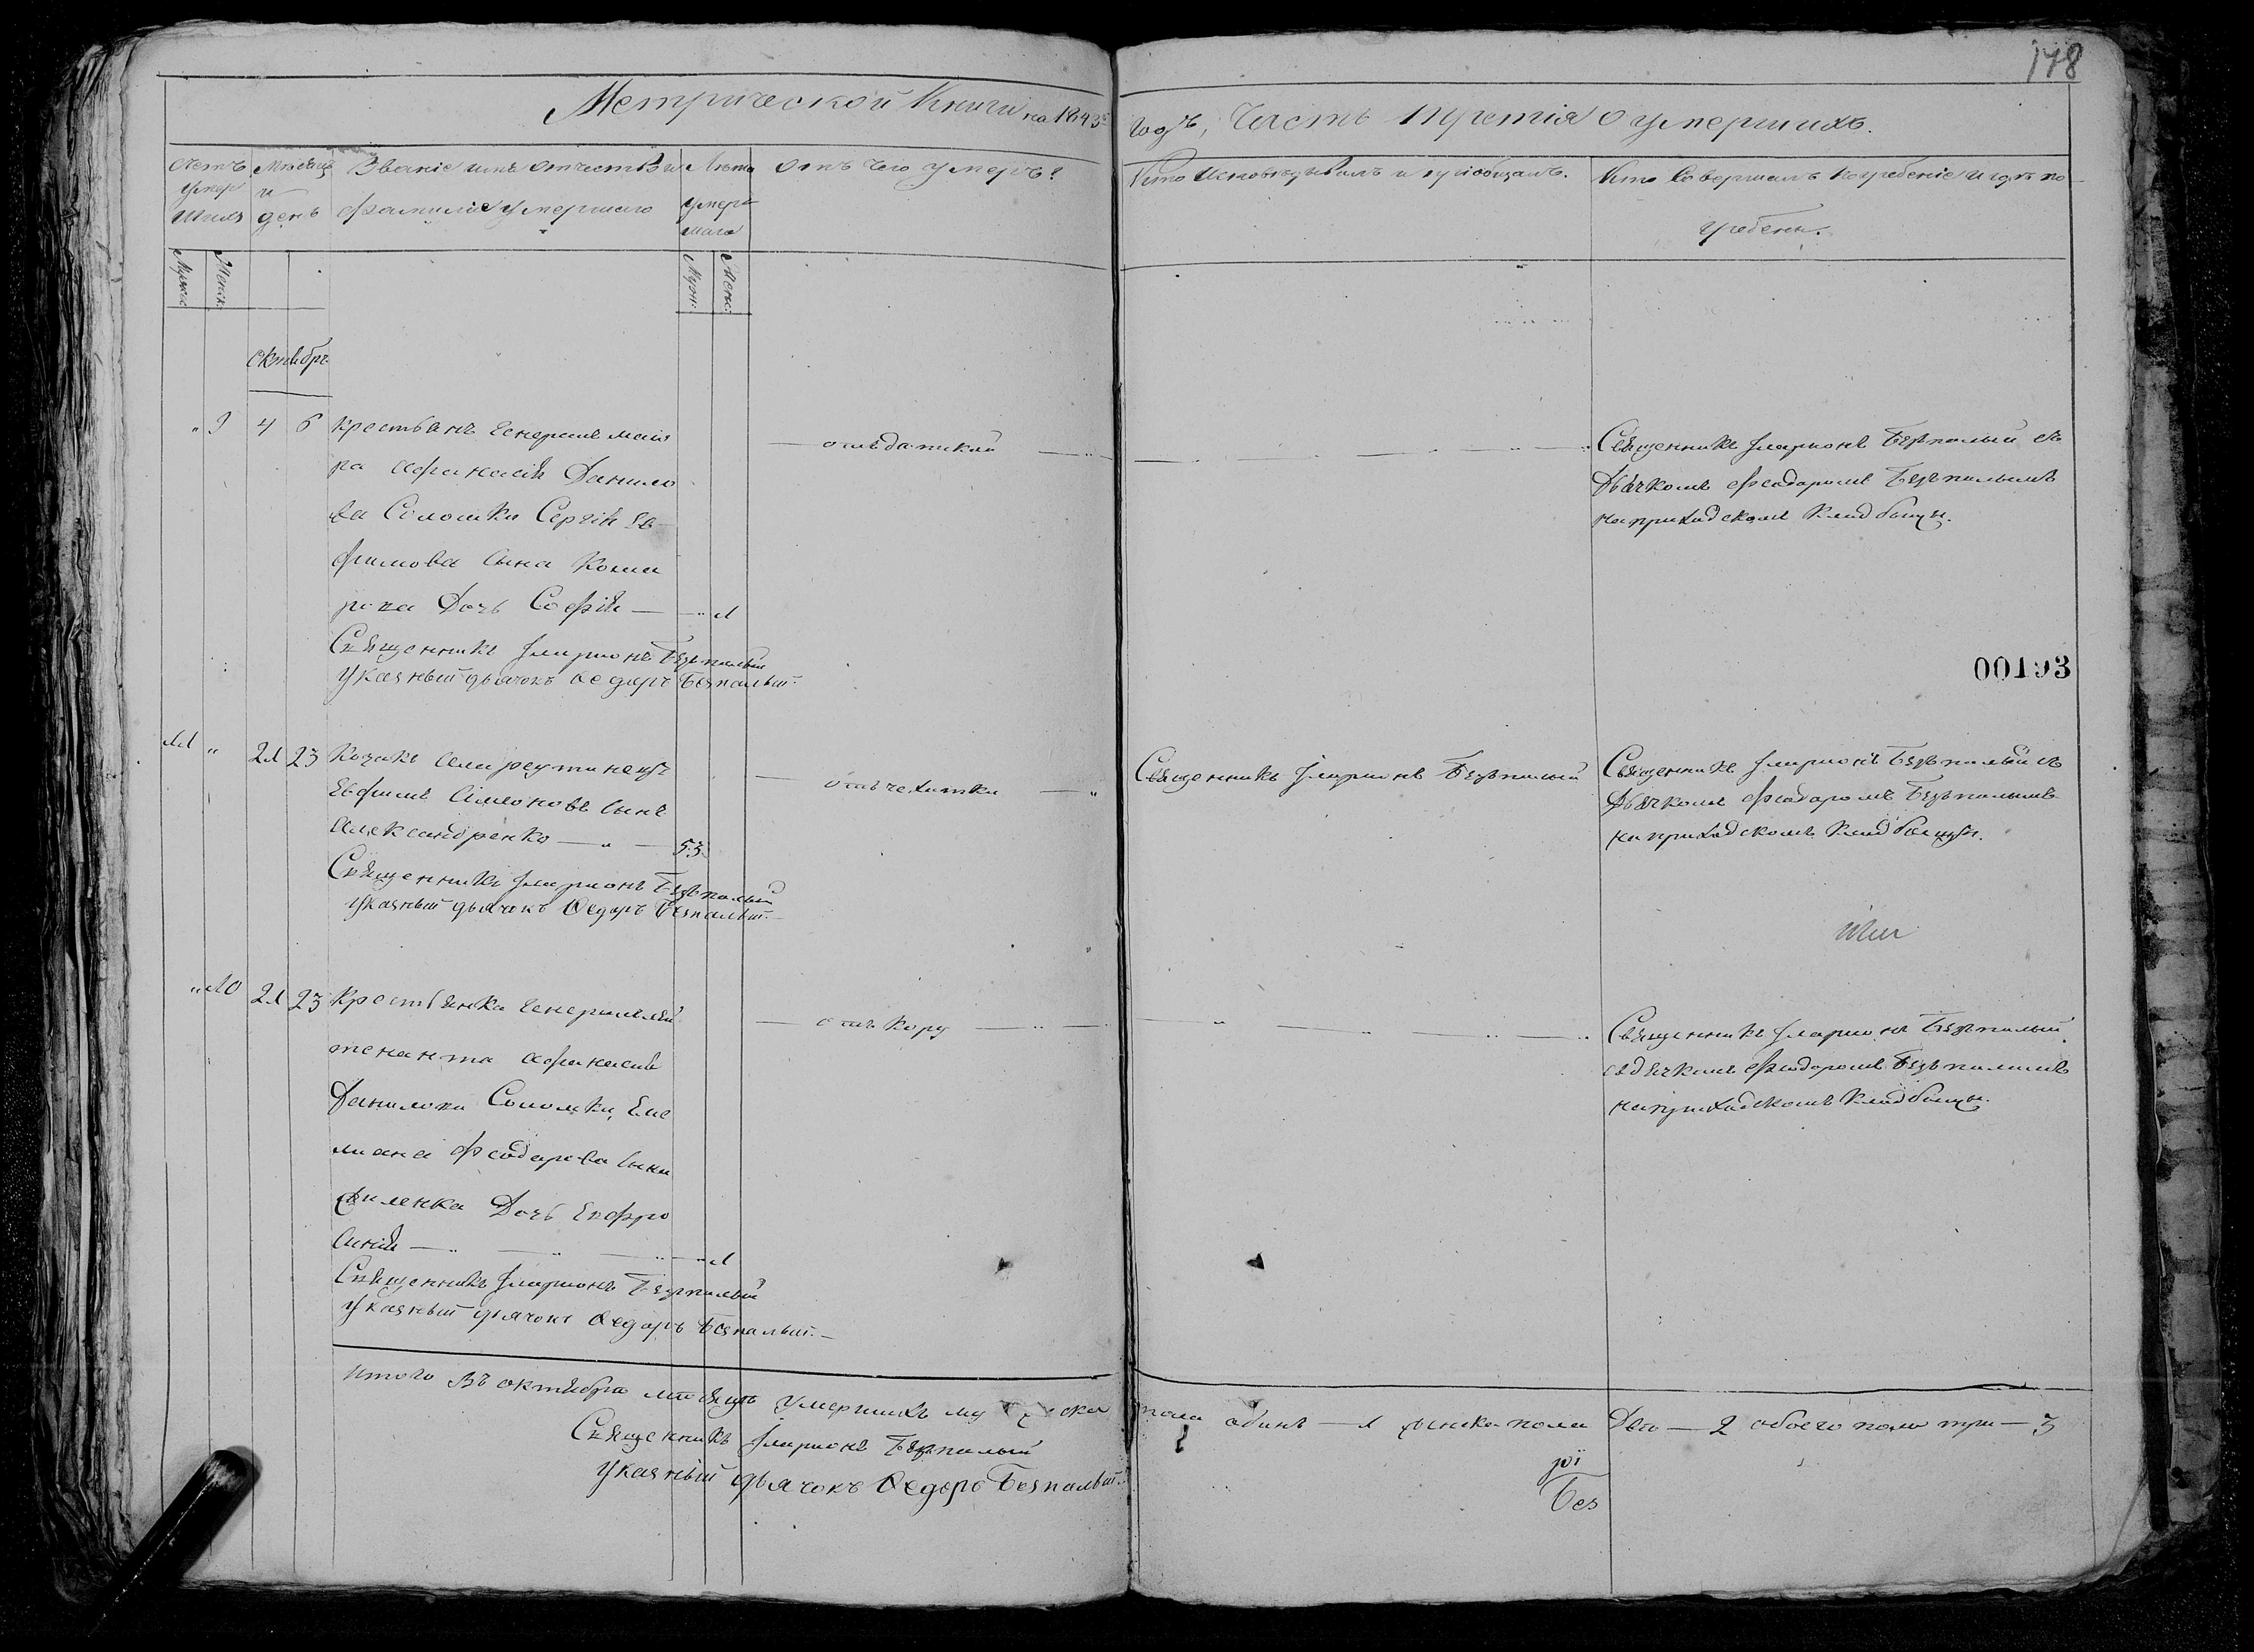 148
Метрической Книги на 1843й
годъ, Часть третія о умершихъ.
Счетъ умер шихъ
Мѣсяцъ и день
Званіе имя отчество и фамиліе умершаго
Лѣта умер шаго
Отъ чего умеръ?
Кто исповѣдывалъ и пріобщалъ.
Кто Совершалъ погребеніе и гдѣ по
гребены.
Мужеск:
Женск:
Муж:
Жен:
октябрь
" 9 4 6 крестьянъ Генералъ маіо
ра Афанасія Данило
ва Соломки Сергія Ев
фимова сына
Дочь Софія — " 1
Священникъ Іларіонъ Безпалый
Указный дьячокъ Ѳедоръ Безпалый.
Священникъ Іларіонъ Безпалый съ
Дьячкомъ Феодоромъ Безпалымъ
на приходскомъ Кладбищи.
00193
11 " 21 23 Козакъ
Евфимъ Симоновъ Сынъ
Александренко — " — 53
Священникъ Іларіонъ Безпалый
Указный дьячокъ Ѳедоръ Безпалый.
Священникъ Іларіонъ Безпалый
Священникъ Іларіонъ Безпалый съ
Дьячкомъ Феодоромъ Безпалымъ
на приходскомъ Кладбищи.
" 10 21 23 Крестьянка Генералълей
тенанта Афанасія
Данилова Соломки, Еме
лиана Феодорова сына
Дочь Евфро
синія — " — " — " 1
отъ кору
Священникъ Іларіонъ Безпалый
Указный дьячокъ Ѳедоръ Безпалый.
Священникъ Іларіонъ Безпалый
съ дьячкомъ Феодоромъ Безпалымъ
на приходскомъ Кладбищи.
Итого въ октябрѣ мѣсяцѣ умершихъ мужеска пола одинъ — 1 женска пола Два — 2 обоего пола три — 3
Священникъ Іларіонъ Безпалый
Указный дьячокъ Ѳедоръ Безпалый.
Без